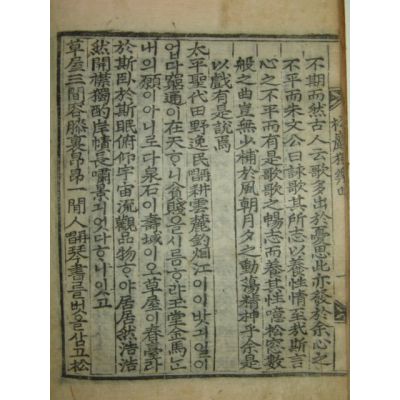 松巖
不期而然古人云歌多出於憂思此亦發於余心之
不平而朱文公曰詠歌其所志以養性情至哉斯言
心之不平而有是歌歌之暢志而養其性噫松窓數
般之曲豈無少補於風朝月夕之動蕩精神乎余是
以戱有是說焉
太平聖代田野逸民再唱耕雲麓釣烟江이이밧긔일이
업다窮通이在天ᄒᆞ니貧賤을시름ᄒᆞ랴玉堂金馬ᄂᆞᆫ
내의願이아니로다泉石이壽域이오草屋이春臺라
於斯臥於斯眠俯仰宇宙流觀品物ᄒᆞ야居居然浩浩
然開襟獨酌岸幘長嘯景긔엇다ᄒᆞ니잇고
草屋三間容膝裏昻昻一閒人再唱琴書를벗을삼고松